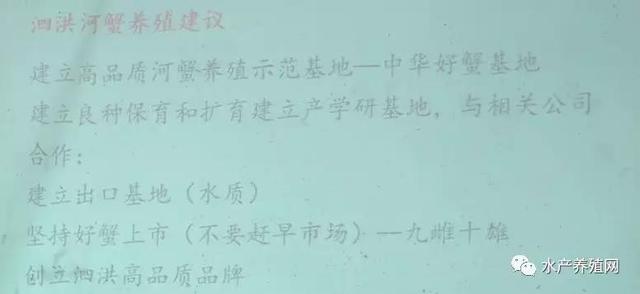 泗洪河蟹养殖建议
建立高品质河蟹养殖示范基地—中华好蟹基地
建立良种保育和扩育建立产学研基地，与相关公司
合作：
建立出口基地（水质）
坚持好蟹上市（不要赶早市场）—九雌十雄
创立泗洪高品质品牌
水产养殖网